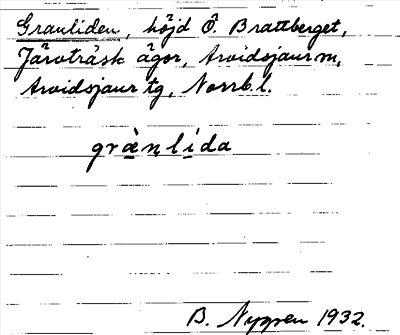 Granliden, höjd Ö. Brattberget,
Järvträsk ägor, Arvidsjaur sn,
Arvidsjaur tg, Norrb. l.
grànlìda
B. Nygren 1932.